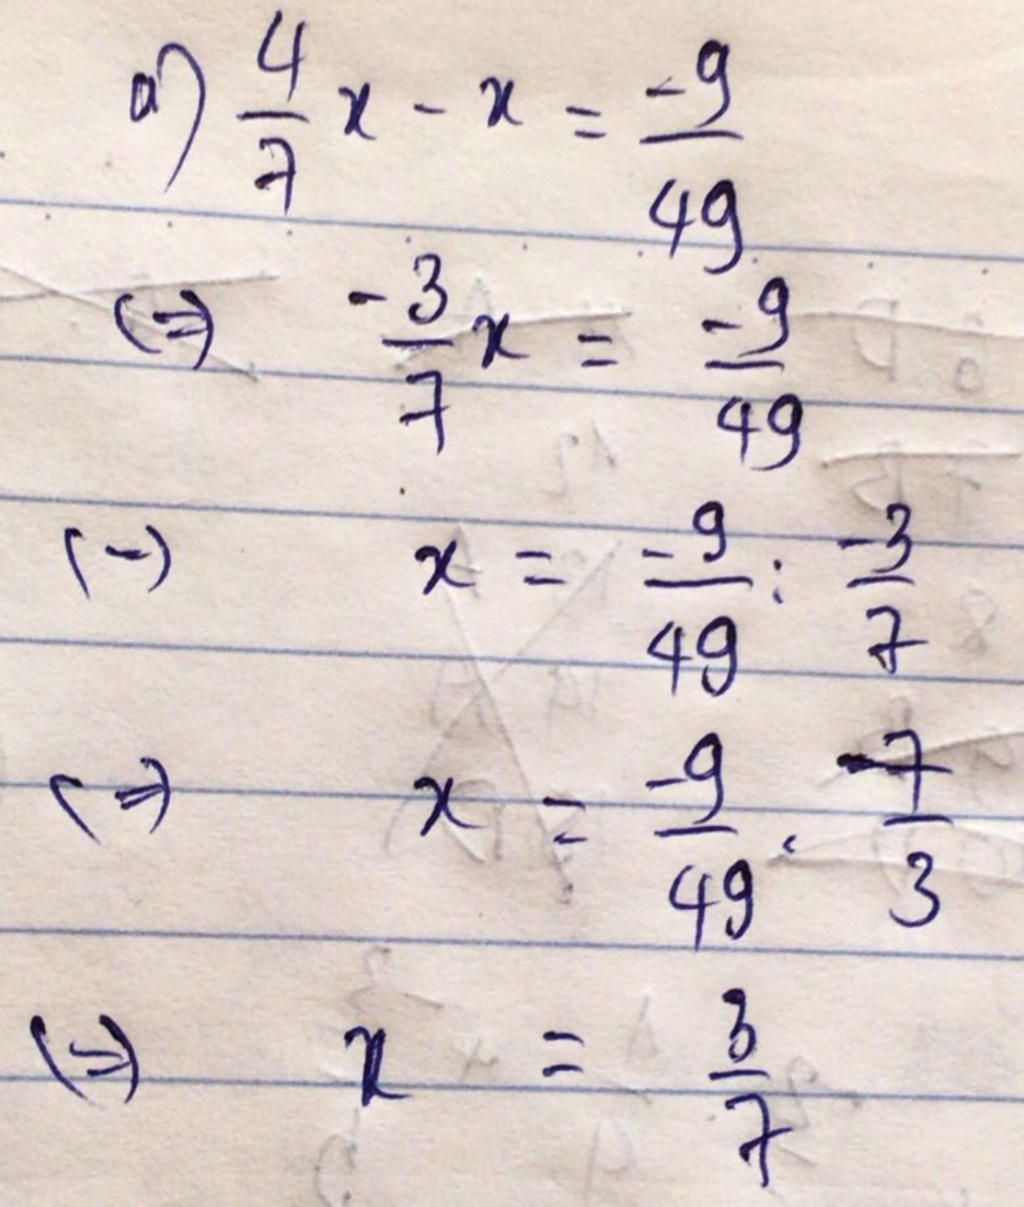 a) 4/7 x - x = -9/49
(=) -3/7 x = -9/49
(-) x = -9/49 : -3/7
(=) x = -9/49 . -7/3
(=) x = 3/7